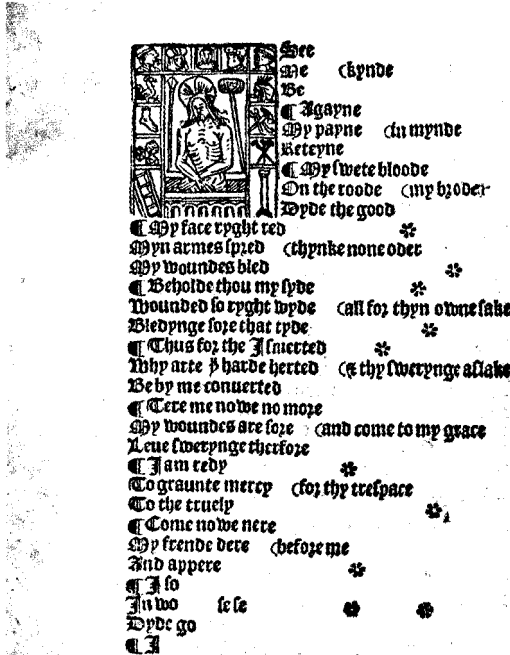 See
Me (kynde
Be
¶ Agayne
My payne (In mynde
Reteyne
¶ My swete bloode
On the roode (my broder
Dyde the good
¶ My face ryght red
Myn armes spred (thynke none oder
My woundes bled
¶ Beholde thou my syde
Wounded so ryght wyde (all for thyn owne sake
Bledynge sore that tyde
¶ Thus for the I smerted
Why arte þͧ harde herted (& thy swerynge aslake
Be by me conuerted
¶ Tere me nowe no more
My woundes are sore (and come to my grace
Leue swerynge therfore
¶ I am redy
To graunte mercy (for thy trespace
To the truely
¶ Come nowe nere
My frende dere (before me
And appere
¶ I so
In wo se se
Dyde go
¶ I